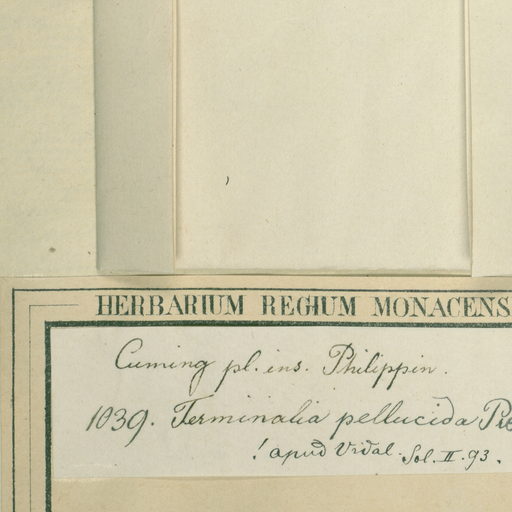 HERBARIUM REGIUM MONACENS
Cuming pl. ins. Philippin.
1039. Terminalia pellucida Pre
! apud Vidal. Sol. II. 93.